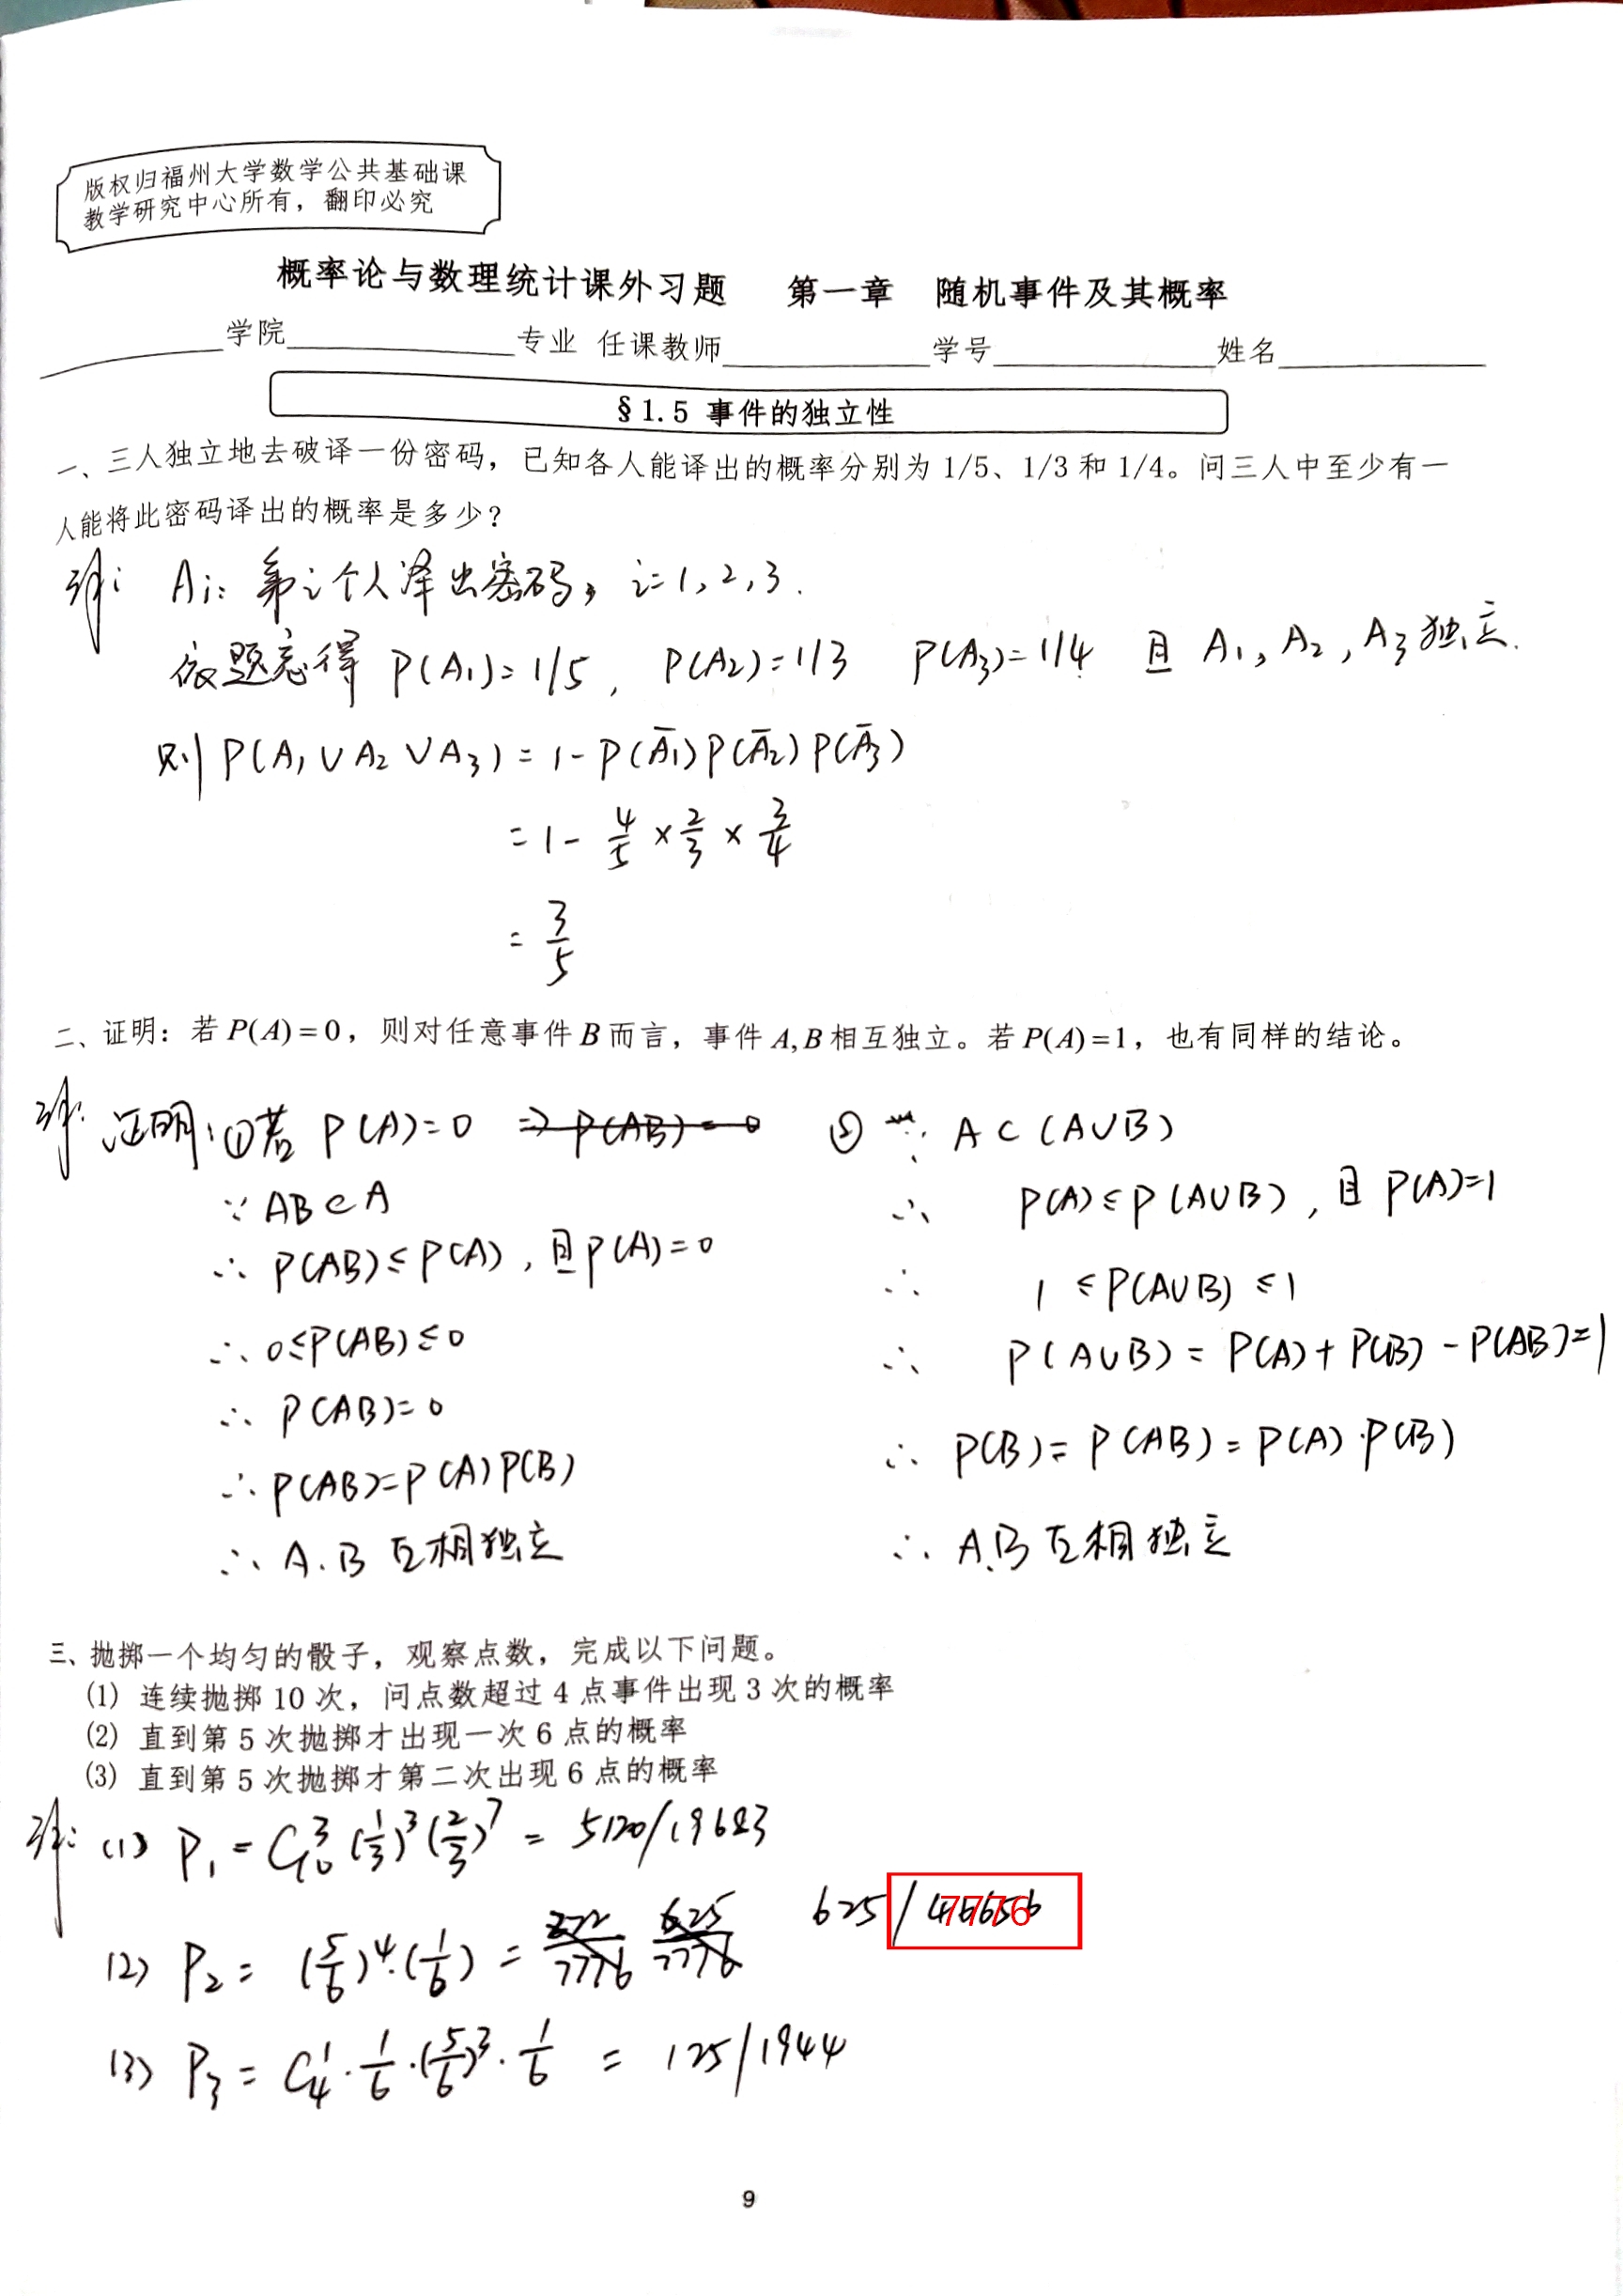 版权归福州大学数学公共基础课
教学研究中心所有，翻印必究
概率论与数理统计课外习题 第一章 随机事件及其概率
学院 专业 任课教师 学号 姓名
§1.5 事件的独立性
一、三人独立地去破译一份密码，已知各人能译出的概率分别为 1/5、1/3 和 1/4。问三人中至少有一
人能将此密码译出的概率是多少？
解: Ai: 第i个人译出密码, i=1,2,3.
依题意得 P(A₁)=1/5, P(A₂)=1/3 P(A₃)=1/4 且 A₁, A₂, A₃ 独立.
则 P(A₁∪A₂∪A₃) = 1-P(A̅₁)P(A̅₂)P(A̅₃)
= 1 - 4/5 × 2/3 × 3/4
= 3/5
二、证明：若 P(A)=0，则对任意事件 B 而言，事件 A,B 相互独立。若 P(A)=1，也有同样的结论。
解: 证明: ①若 P(A)=0 ⇒ P(AB)=0
∵ AB⊂A
∴ P(AB)≤P(A), 且P(A)=0
∴ 0≤P(AB)≤0
∴ P(AB)=0
∴ P(AB)=P(A)P(B)
∴ A.B 互相独立
② ∵ A⊂(A∪B)
∴ P(A)≤P(A∪B), 且 P(A)=1
∴ 1≤P(A∪B)≤1
∴ P(A∪B)=P(A)+P(B)-P(AB)=1
∴ P(B)=P(AB)=P(A)·P(B)
∴ A.B 互相独立
三、抛掷一个均匀的骰子，观察点数，完成以下问题。
(1) 连续抛掷 10 次，问点数超过 4 点事件出现 3 次的概率
(2) 直到第 5 次抛掷才出现一次 6 点的概率
(3) 直到第 5 次抛掷才第二次出现 6 点的概率
解: (1) P₁ = C₁₀³ (1/3)³ (2/3)⁷ = 5120/19683
(2) P₂ = (5/6)⁴·(1/6) = 625/7776 625/46656 7776
(3) P₃ = C₄¹·1/6·(5/6)³·1/6 = 125/1944
9